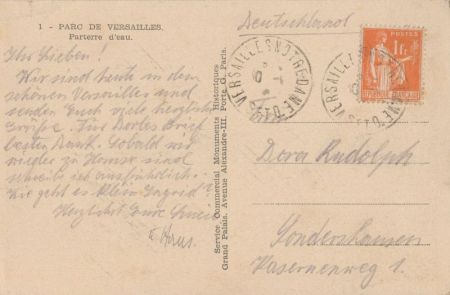 1 - PARC DE VERSAILLES.
Parterre d'eau.
Ihr Lieben!
Wir sind heute in dem
schönen Versailles und
senden Euch viele herzliche
Grüße. Für Dorles Brief
besten Dank. Sobald wir
wieder zu Hause sind
schreibe ich ausführlich.
Wie geht es Klein Ingrid?
Herzlichst Eure
u. Hans.
Service Commercial Monuments Historiques
Grand Palais. Avenue Alexandre-III. Porte G. Paris.
Deutschland
VERSAILLES NOTRE DAME
VERSAILLES NOTRE DAME
1F
Dora Rudolph
Sondershausen
Kasernenweg 1.